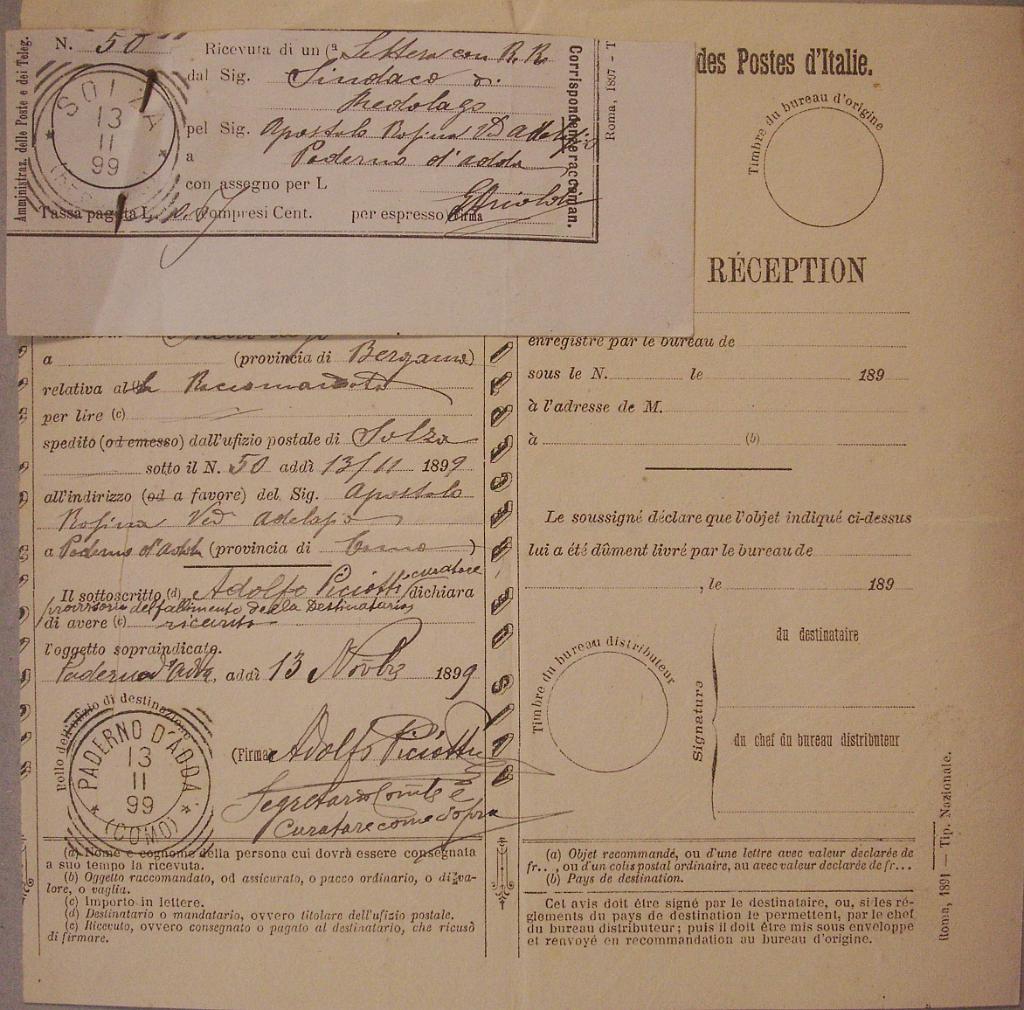 Amministraz. delle Poste e dei Teleg.
N. 50
Ricevuta di un (a Lettera con R. R.
dal Sig. Sindaco di
Medolago
pel Sig. Apostolo Rosina Vd Adelasio
a Paderno d'adda
con assegno per L
Tassa pagata L. compresi Cent. per espresso Firma
Corrispondenze raccoman.
Roma, 1897 - T
SOLZA
13
11
99
des Postes d'Italie.
Timbre du bureau d'origine
RÉCEPTION
a (provincia di Bergamo)
relativa alla Raccomandata
per lire (c)
spedito (od emesso) dall'ufizio postale di Solza
sotto il N. 50 addì 13/11 1899
all'indirizzo (od a favore) del Sig. Apostolo
Rosina Ved Adelasio
a Paderno d'Adda (provincia di Como)
Il sottoscritto (d) Adolfo Piciotti curatore dichiara
provvisorio del fallimento della Destinataria
di avere (e) ricevuto
l'oggetto sopraindicato.
Paderno d'Adda, addì 13 Novbre 1899
Bollo dell'ufizio di destinazione
PADERNO D'ADDA
13
11
99
(COMO)
(Firma) Adolfo Piciotti
Segretario Comle e
Curatore come sopra
(a) Nome e cognome della persona cui dovrà essere consegnata
a suo tempo la ricevuta.
(b) Oggetto raccomandato, od assicurato, o pacco ordinario, o di va-
lore, o vaglia.
(c) Importo in lettere.
(d) Destinatario o mandatario, ovvero titolare dell'ufizio postale.
(e) Ricevuto, ovvero consegnato o pagato al destinatario, che ricusò
di firmare.
enregistré par le bureau de
sous le N. le 189
à l'adresse de M.
à (b)
Le soussigné déclare que l'objet indiqué ci-dessus
lui a été dûment livré par le bureau de
, le 189
Timbre du bureau distributeur
Signature
du destinataire
du chef du bureau distributeur
(a) Objet recommandé, ou d'une lettre avec valeur declarée de
fr.., ou d'un colis postal ordinaire, au avec valeur declarée de fr...
(b) Pays de destination.
Cet avis doit être signé par le destinataire, ou, si les ré-
glements du pays de destination le permettent, par le chef
du bureau distributeur; puis il doit être mis sous enveloppe
et renvoyé en recommandation au bureau d'origine.
Roma, 1891 — Tip. Nazionale.